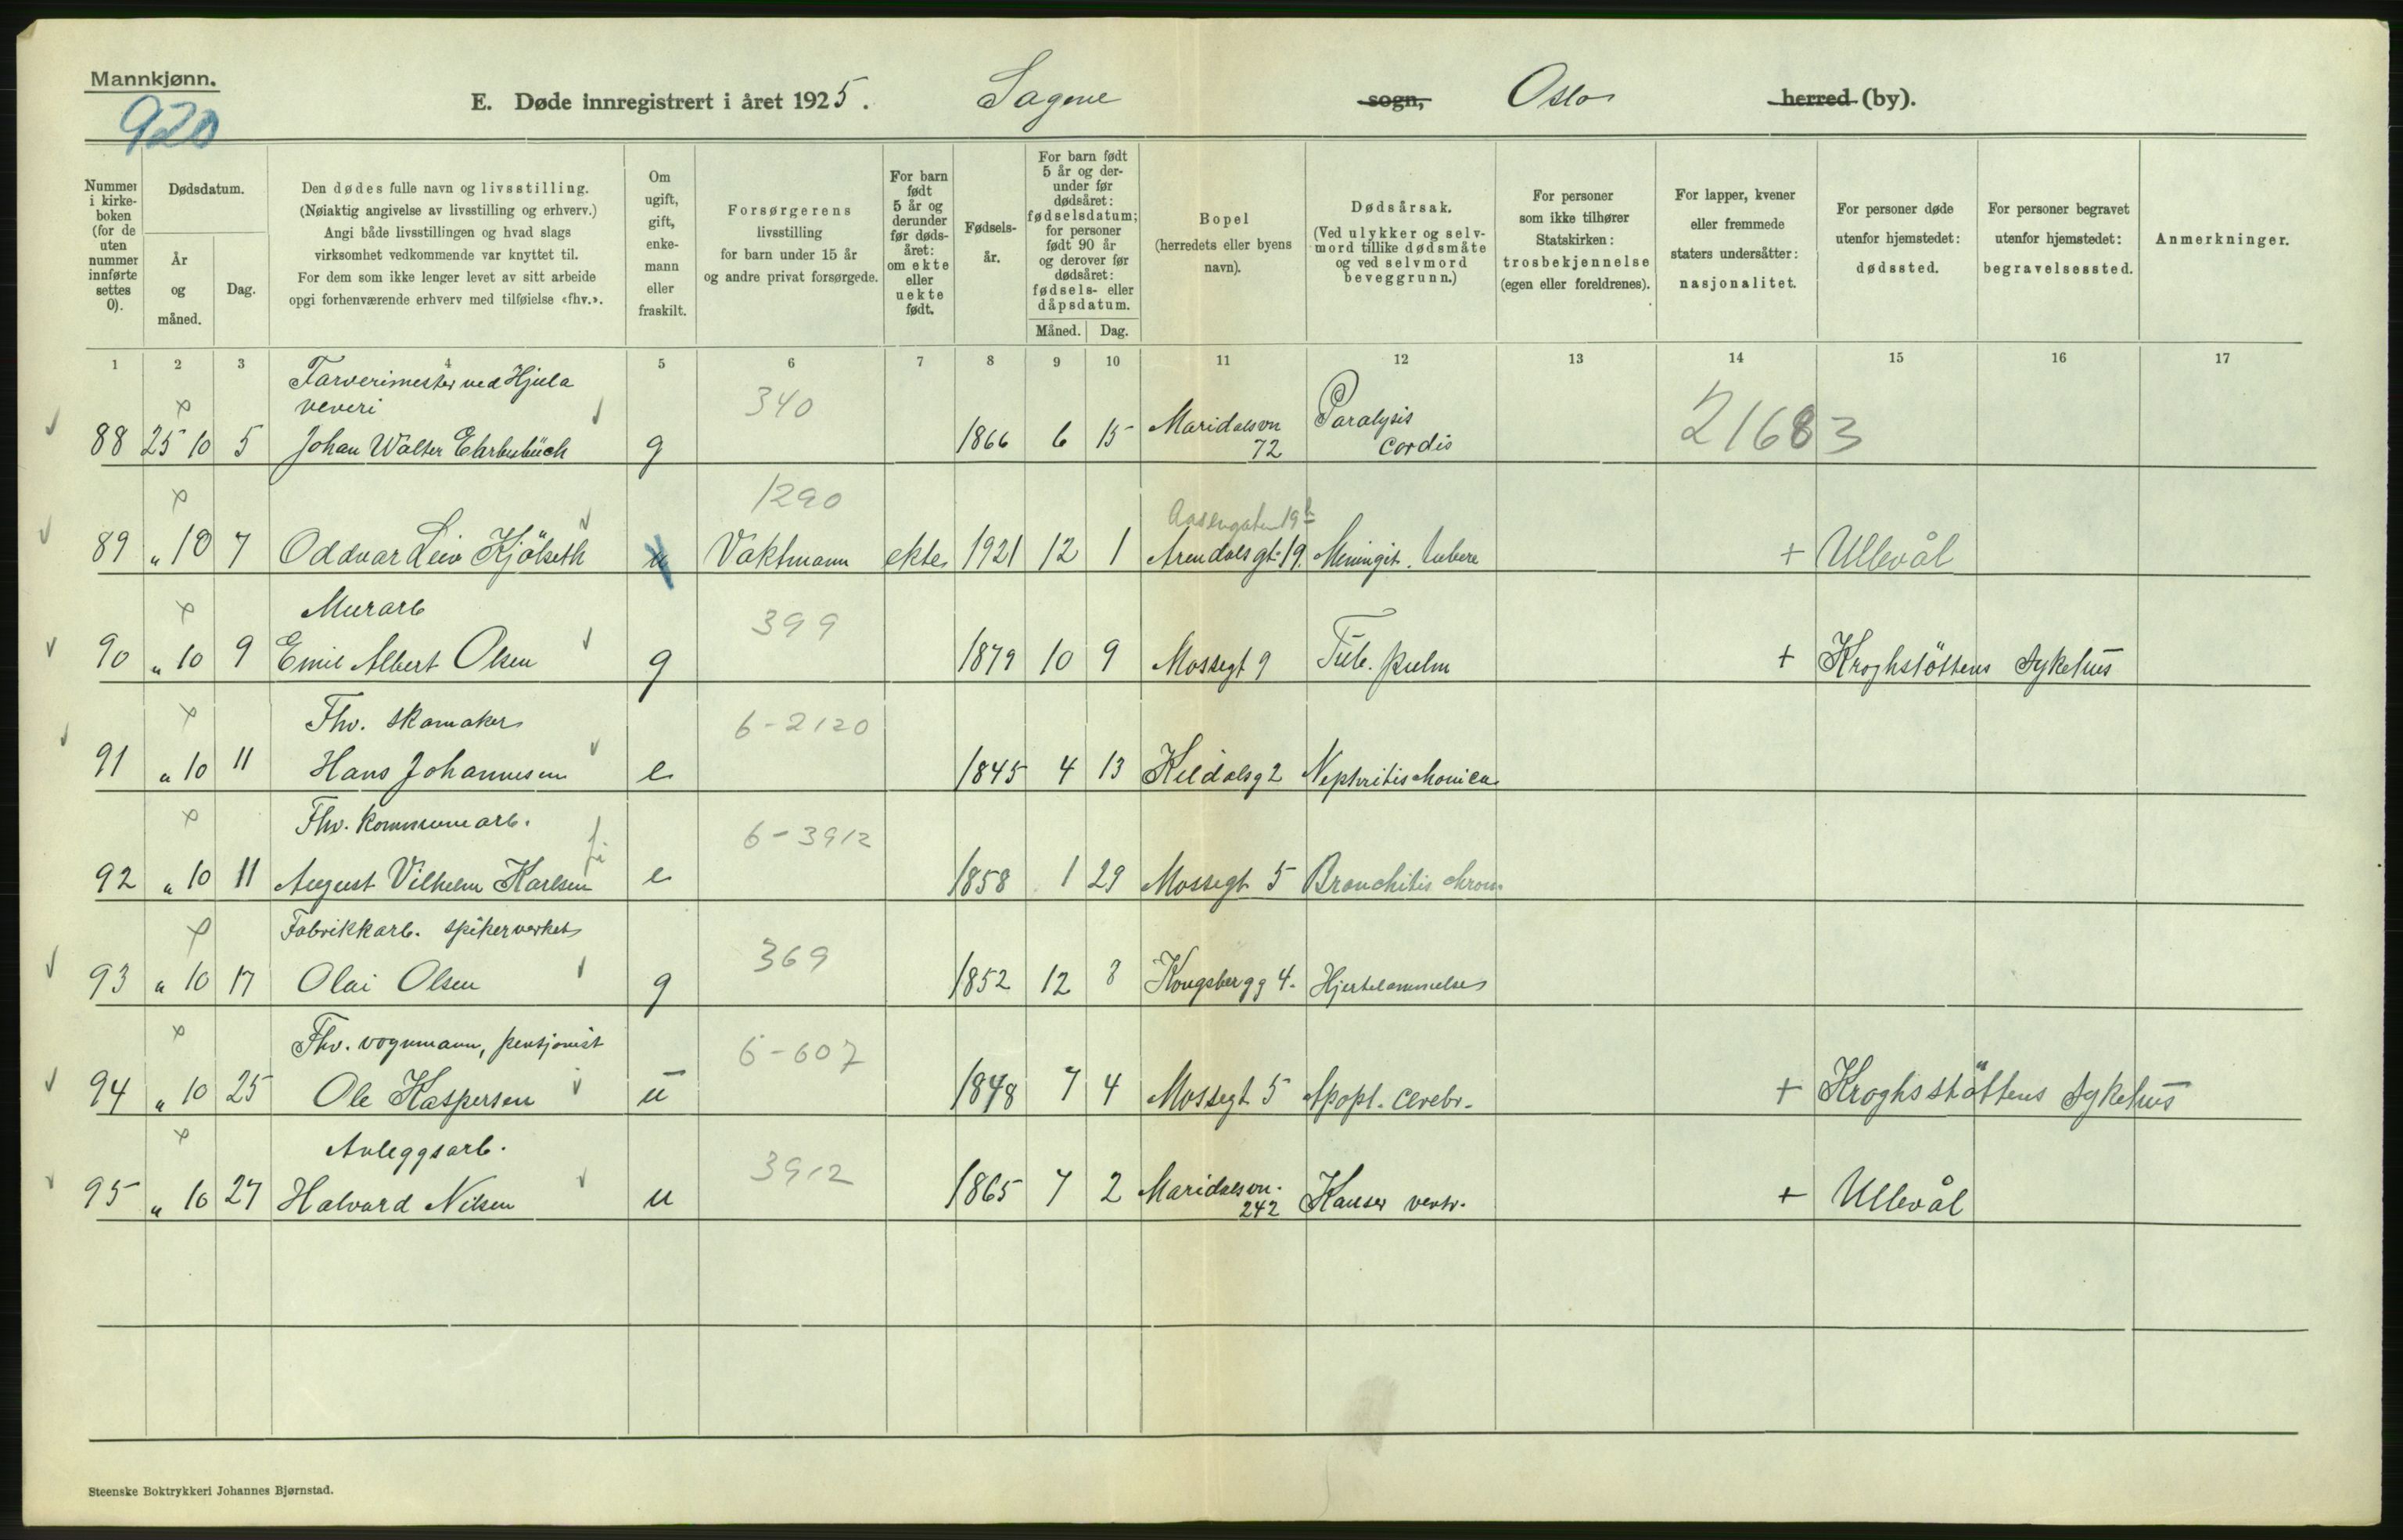 Mannkjønn.
920
E. Døde innregistrert i året 1925. Sagene sogn, Oslo herred (by).
Nummer i kirke- boken (for de uten nummer innførte settes 0).
Dødsdatum.
År og måned.
Dag.
Den dødes fulle navn og livsstilling.
(Nøiaktig angivelse av livsstilling og erhverv.)
Angi både livsstillingen og hvad slags
virksomhet vedkommende var knyttet til.
For dem som ikke lenger levet av sitt arbeide
opgi forhenværende erhverv med tilføielse «fhv.».
Om ugift, gift, enke- mann eller fraskilt.
Forsørgerens
livsstilling
for barn under 15 år
og andre privat forsørgede.
For barn født 5 år og derunder før døds- året: om ekte eller uekte født.
Fødsels- år.
For barn født 5 år og der- under før dødsåret: fødselsdatum; for personer født 90 år og derover før dødsåret: fødsels- eller dåpsdatum.
Måned. Dag.
Bopel
(herredets eller byens
navn).
Dødsårsak.
(Ved ulykker og selv-
mord tillike dødsmåte
og ved selvmord
beveggrunn.)
For personer
som ikke tilhører
Statskirken:
trosbekjennelse
(egen eller foreldrenes).
For lapper, kvener
eller fremmede
staters undersåtter:
nasjonalitet.
For personer døde
utenfor hjemstedet:
dødssted.
For personer begravet
utenfor hjemstedet:
begravelsessted.
Anmerkninger.
1 2 3 4 5 6 7 8 9 10 11 12 13 14 15 16 17
Farverimester ved Hjula
veveri 340
88 25 10 5 Johan Walter g 1866 6 15 Maridalsvn 72 Paralysis cordis 21683
1290
Aasengaten 19b
89 " 10 7 Oddvar Leiv Kjölseth u Vaktmann ekte 1921 12 1 Arendalsgt. 19. Meningit. tuberc + Ullevål
Murarb 399
90 " 10 9 Emil Albert Olsen g 1879 10 9 Mossegt 9 Tub. pulm + Kroghstöttens sykehus
Fhv. skomaker 6-2120
91 " 10 11 Hans Johannesen e 1845 4 13 Keldalsg 2 Nephritis chronica
Fhv. kommunearb. 6-3912
92 " 10 11 August Vilhelm Karlsen e 1858 1 29 Mossegt 5 Bronchitis chron.
Fabrikkarb. spikerverket 369
93 " 10 17 Olai Olsen g 1852 12 8 Kongsbergg 4. Hjertelammelse
Fhv. vognmann, pensjonist 6-607
94 " 10 25 Ole Kaspersen u 1848 7 4 Mossegt 5 Apopl. cerebr. + Kroghsstöttens sykehus
Anleggsarb. 3912
95 " 10 27 Halvard Nilsen u 1865 7 2 Maridalsvn. 242 Kanser ventr. + Ullevål
Steenske Boktrykkeri Johannes Bjørnstad.